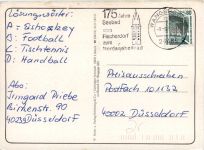 Lösungswörter:
A = Eishockey
B = Football
C = Tischtennis
D = Handball
Abs:
Irmgard Priebe
Birkenstr. 90
40233 Düsseldorf
175 Jahre
Seebad
vom
Fischerdorf
zum
Nordseeheilbad
Preisausschreiben
Postfach 10 11 62
40002 Düsseldorf